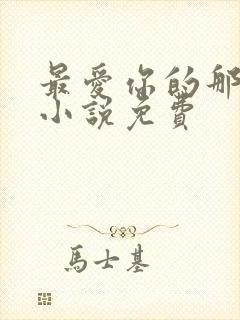 最愛你的那
小說免費
馬士基